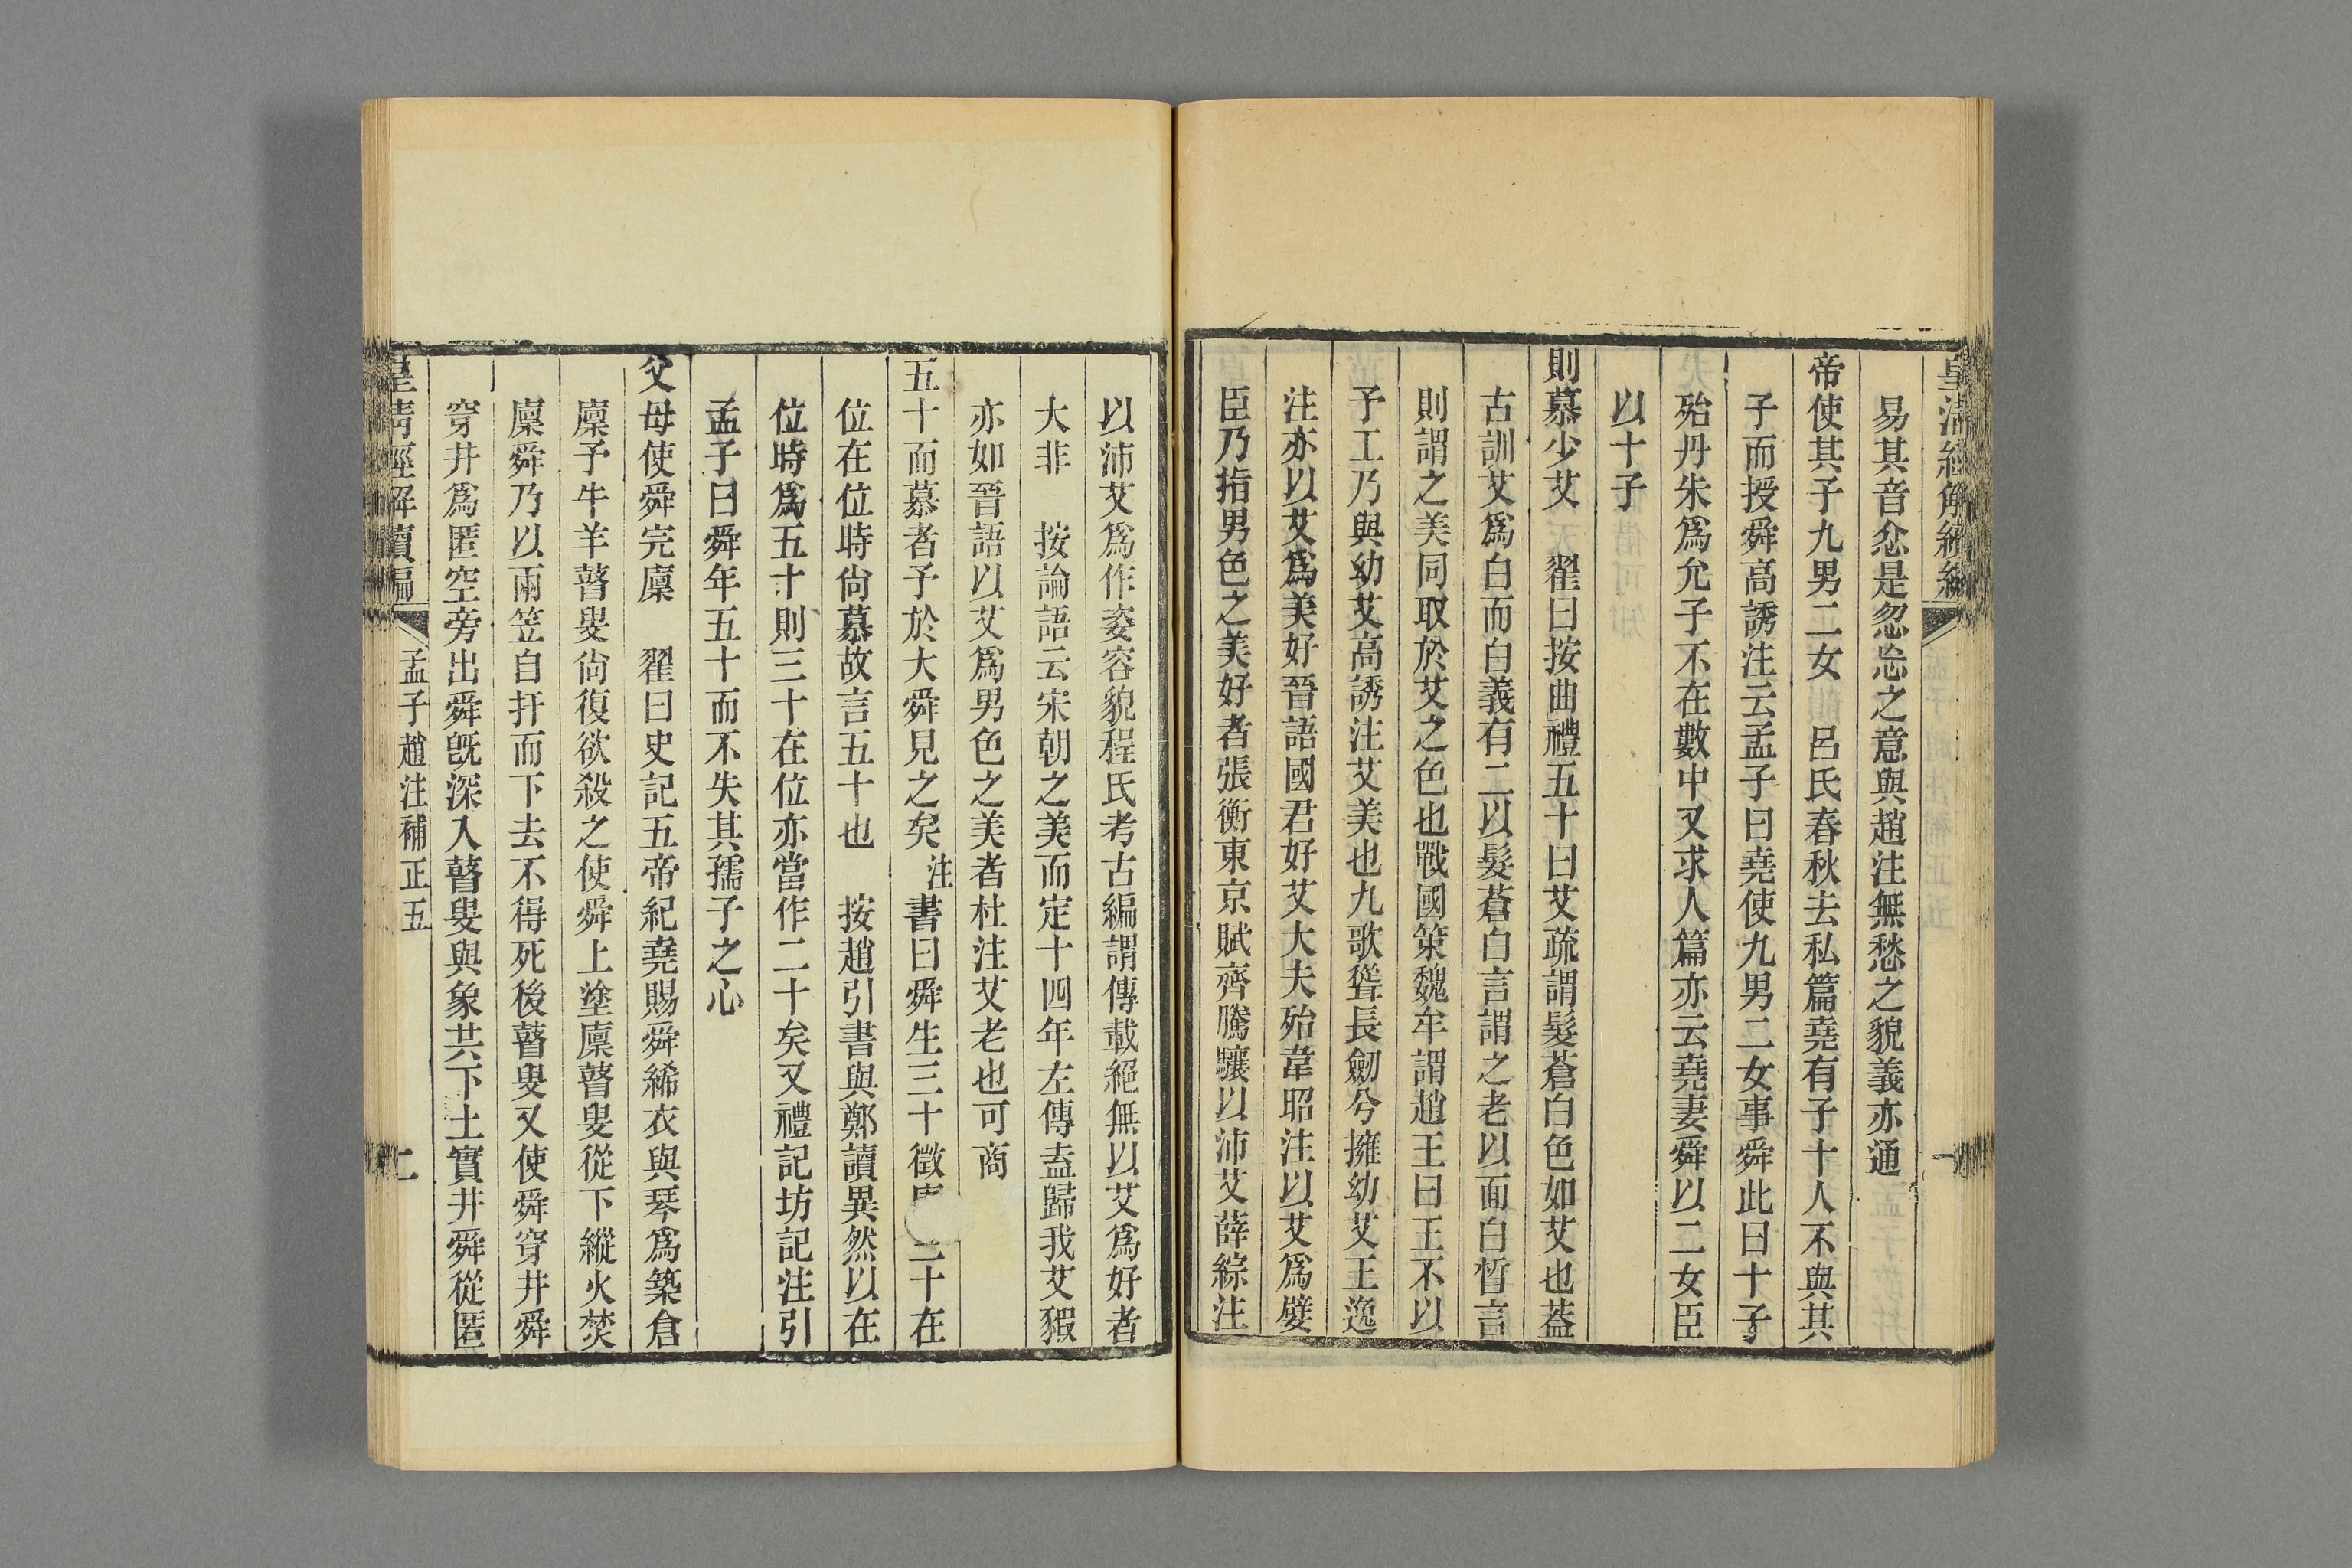 皇清經解續編 一
易其音忿是忽忘之意與趙注無愁之貌義亦通
帝使其子九男二女 呂氏春秋去私篇堯有子十人不與其
子而授舜高誘注云孟子曰堯使九男二女事舜此曰十子
殆丹朱爲允子不在數中又求人篇亦云堯妻舜以二女臣
以十子
則慕少艾 翟曰按曲禮五十曰艾疏謂髮蒼白色如艾也葢
古訓艾爲白而白義有二以髮蒼白言謂之老以面白晳言
則謂之美同取於艾之色也戰國策魏牟謂趙王曰王不以
予工乃與幼艾高誘注艾美也九歌聳長劒兮擁幼艾王逸
注亦以艾爲美好晉語國君好艾大夫殆韋昭注以艾爲嬖
臣乃指男色之美好者張衡東京賦齊騰驤以沛艾薛綜注
以沛艾爲作姿容貌程氏考古編謂傳載絕無以艾爲好者
大非 按論語云宋朝之美而定十四年左傳盍歸我艾豭
亦如晉語以艾爲男色之美者杜注艾老也可商
五十而慕者予於大舜見之矣 注書曰舜生三十徵 二十在
位在位時尙慕故言五十也 按趙引書與鄭讀異然以在
位時爲五十則三十在位亦當作二十矣又禮記坊記注引
孟子曰舜年五十而不失其孺子之心
父母使舜完廩 翟曰史記五帝紀堯賜舜絺衣與琴爲築倉
廩予牛羊瞽叟尙復欲殺之使舜上塗廩瞽叟從下縱火焚
廩舜乃以兩笠自扞而下去不得死後瞽叟又使舜穿井舜
穿井爲匿空旁出舜旣深入瞽叟與象共下土實井舜從匿
皇清經解續編 孟子趙注補正五 二